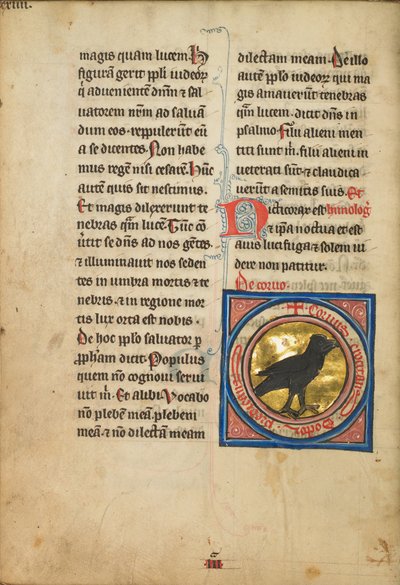 xxiiii.
magis quam lucem. H
figurā gerit ppli iudeoꝝ
q̇ aduenientē dnm̄ ⁊ sal
uatorem nrm̄ ad saluā
dum eos. reppulerūt eū
a se dicentes. Non habe
mus regem nisi cesarē. Tūc
autem quis sit nescimus.
Et magis dilexerunt te
nebras q̄m lucē. Tūc cō
uūt se dn̄s ad nos gētes.
⁊ illuminauit nos seden
tes in umbra mortis ⁊ te
nebris. ⁊ in regione mor
tis lux orta est nobis.
De hoc pplo saluator ꝑ
ꝓpham dicit. Populus
quem nō cognoui serui
uit m̄. Et alibi. Vocabo
nō plebem meā. plebem
meā. ⁊ nō dilectam meam
dilectam meam. De illo
autē pplo iudeoꝝ qui ma
gis amauerūt tenebras
q̄m lucem. dicit dn̄s in
psalmo. Filii alieni men
titi sunt m̄. filii alieni in
ueterati sūt. ⁊ claudica
uerūt a semitis suis. Et
Nicticorax est hinolog̃
⁊ ip̄a noctua ⁊ est
auis lucifuga ⁊ solem ui
dere non patitur.
De coruo.
Coruus
III